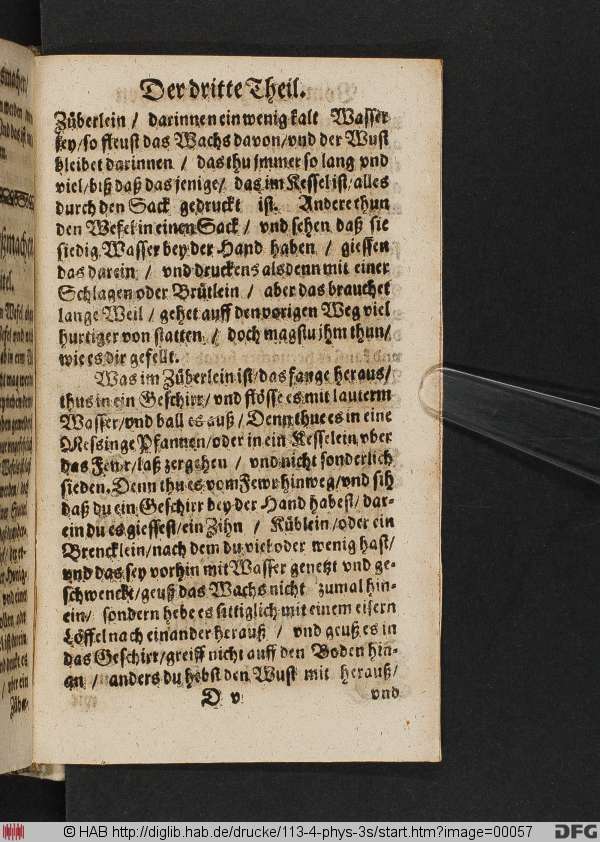 Der dritte Theil.
Züberlein / darinnen ein wenig kalt Wasser
sey / so fleust das Wachs davon / vnd der Wust
bleibet darinnen / das thu jmmer so lang vnd
viel / biß daß das jenige / das im Kessel ist / alles
durch den Sack gedruckt ist. Andere thun
den Wefel in einen Sack / vnd sehen daß sie
siedig Wasser bey der Hand haben / giessen
das darein / vnd druckens alsdenn mit einer
Schlagen oder Brütlein / aber das brauchet
lange Weil / gehet auff den vorigen Weg viel
hurtiger von statten / doch magstu jhm thun /
wie es dir gefellt.
Was im Züberlein ist / das fange heraus /
thus in ein Geschirr / vnd flösse es mit lauterm
Wasser / vnd ball es auß / Denn thue es in eine
Messinge Pfannen / oder in ein Kesselein vber
das Fewr / laß zergehen / vnd nicht sonderlich
sieden. Denn thu es vom Fewr hinweg / vnd sih
daß du ein Geschirr bey der Hand habest / dar-
ein du es giessest / ein Zihn / Küblein / oder ein
Brencklein / nach dem du viel oder wenig hast /
vnd das sey vorhin mit Wasser genetzt vnd ge-
schwenckt / geuß das Wachs nicht zumal hin-
ein / sondern hebe es sittiglich mit einem eisern
Löffel nach einander herauß / vnd geuß es in
das Geschirr / greiff nicht auff den Boden hin-
an / anders du hebst den Wust mit herauß /
D v vnd
© HAB http://diglib.hab.de/drucke/113-4-phys-3s/start.htm?image=00057
DFG